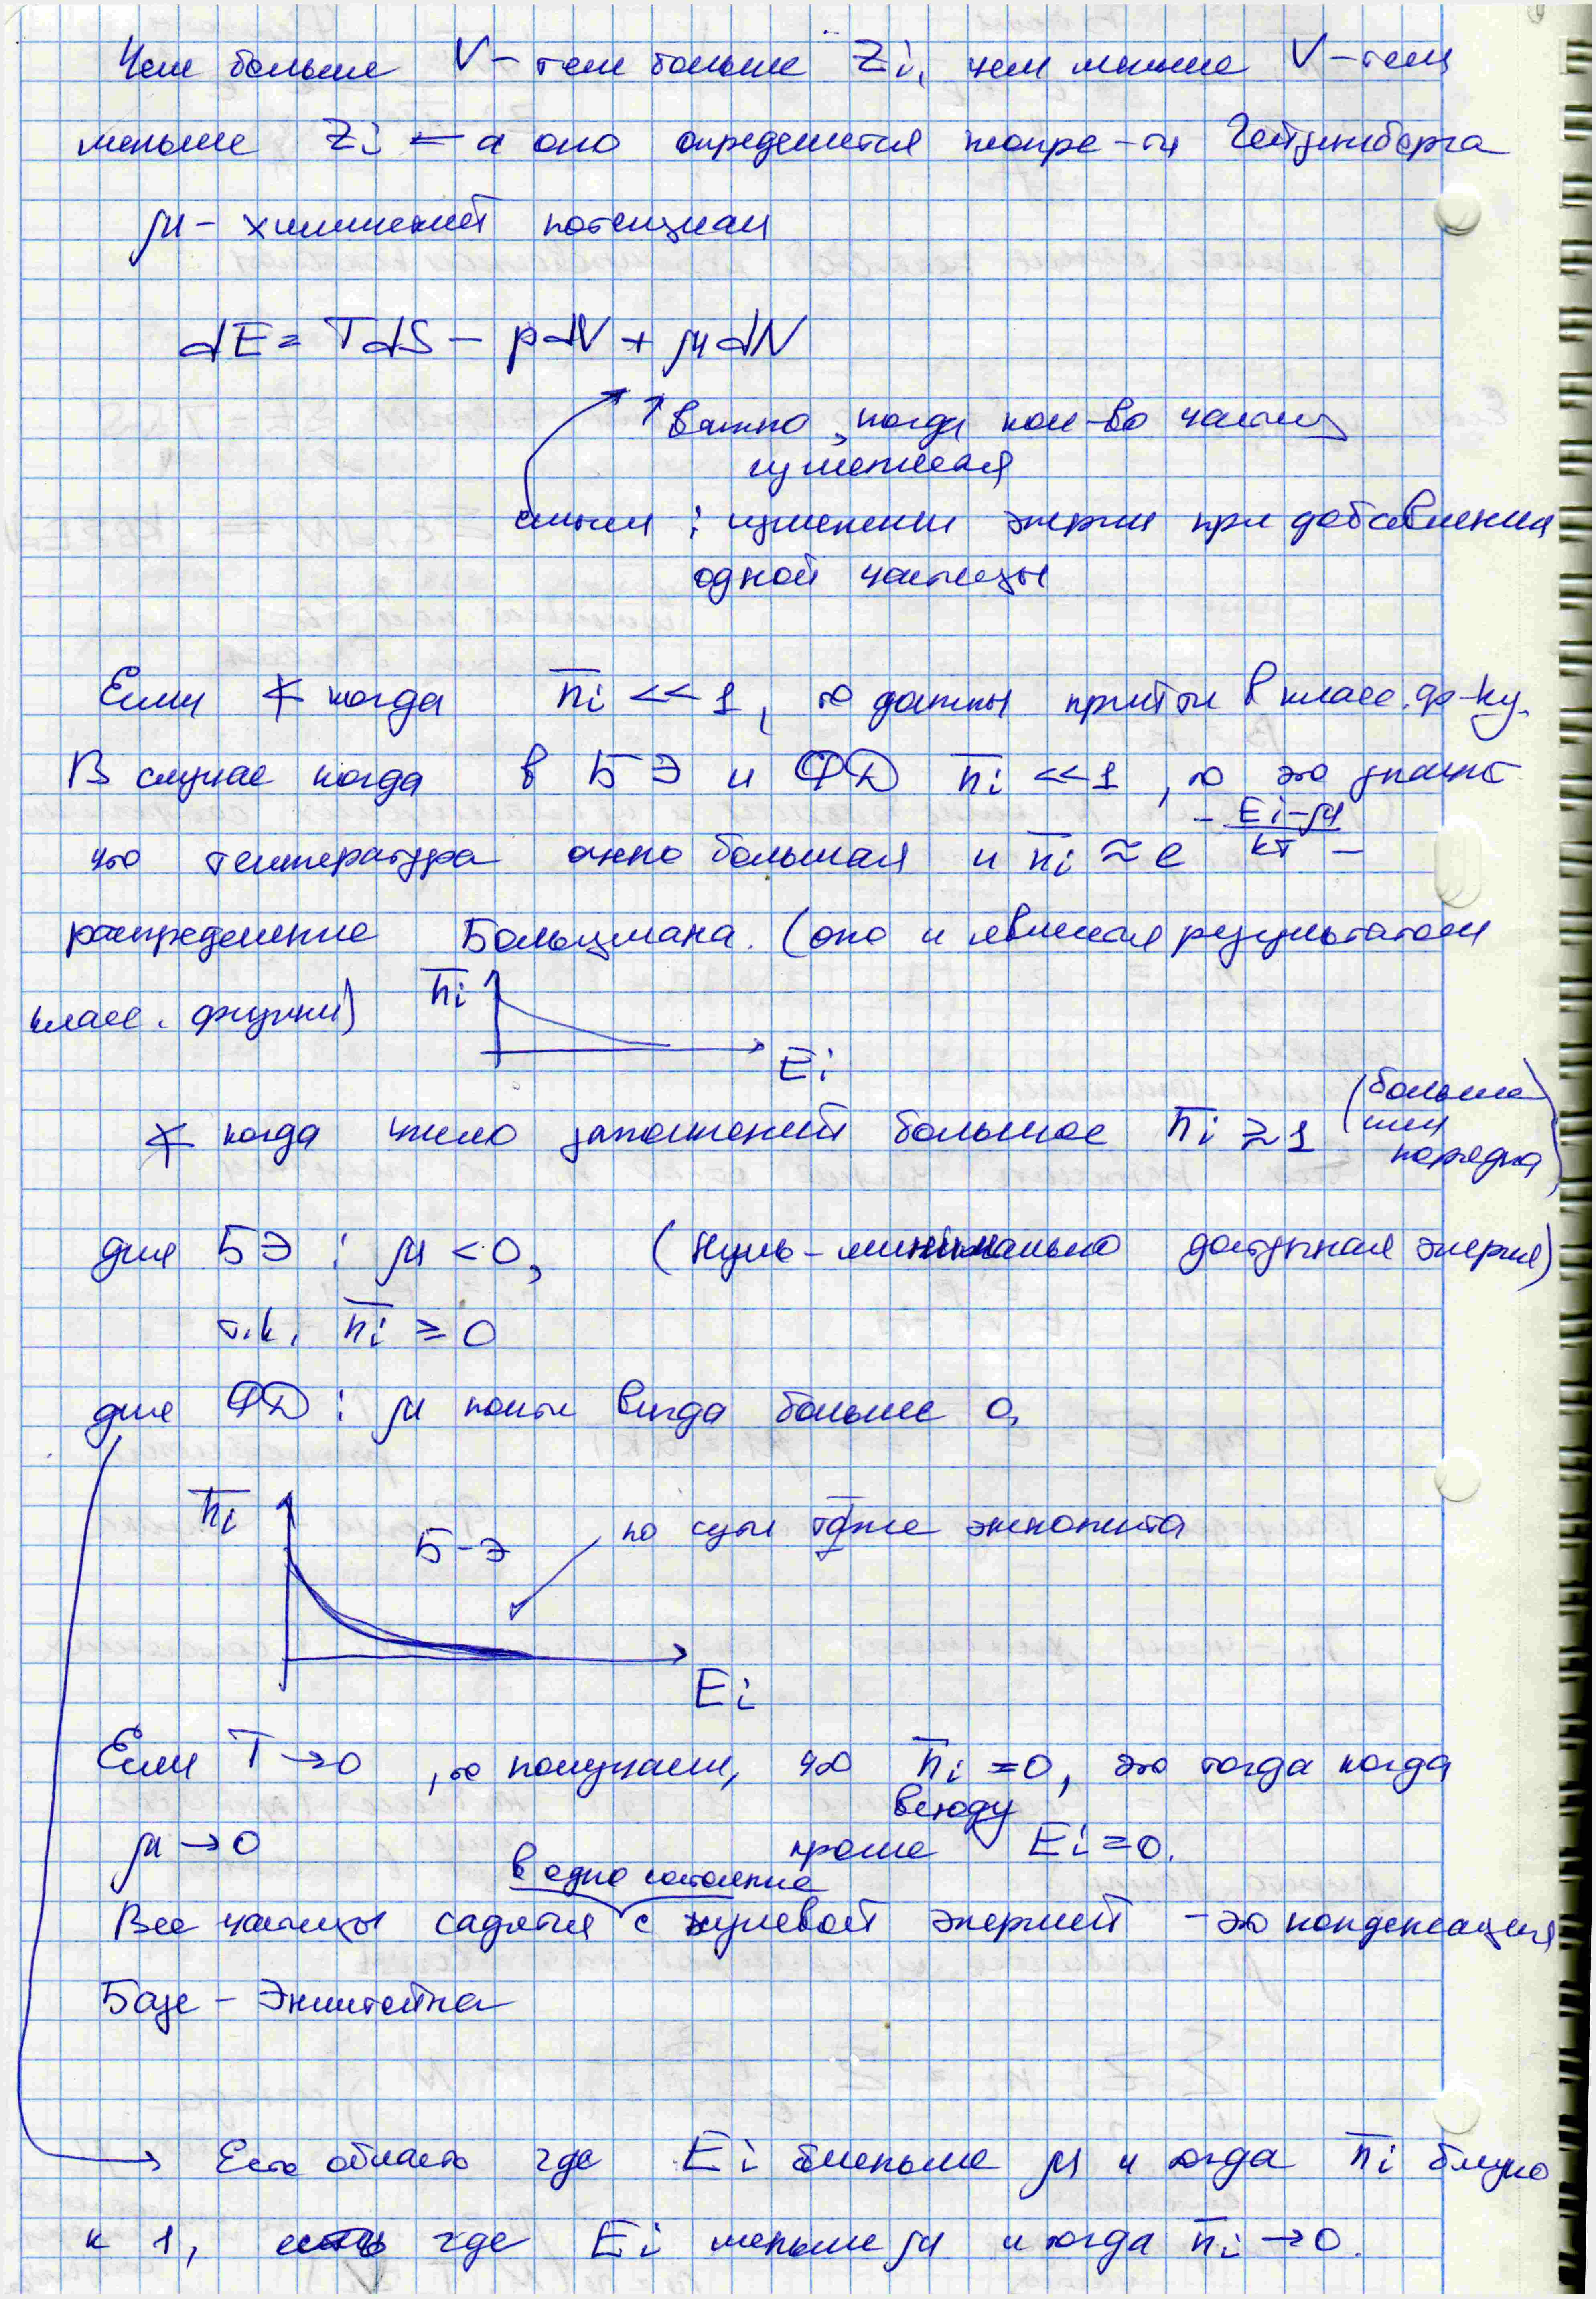 Чем больше V - тем больше Zi, чем меньше V - тем
меньше Zi ← а оно определяется неопре-ти Гейзенберга
μ - химический потенциал
dE = TdS - pdV + μdN
↑ важно, когда кол-во частиц
изменяется
смысл : изменении энергии при добавлении
одной частицы
Если * когда n̄i << 1, то должны прийти в класс. ф-ку.
В случае когда в БЭ и ФД n̄i << 1, то это значит
что температура очень большая и n̄i ≈ e^(-(Ei-μ)/kT) -
распределение Больцмана. (оно и является результатом
класс. физики)
n̄i
Ei
* когда число заполнений большое n̄i ≳ 1 (больше
или
порядка)
для БЭ : μ < 0, (нуль - минимально доступная энергия)
т.к. n̄i ≥ 0
для ФД : μ почти всегда больше 0.
n̄i
Б-Э
по сути тоже экспонента
Ei
Если T → 0, то получаем, что n̄i = 0, это тогда когда
всюду
μ → 0 кроме Ei = 0.
в одно состояние
Все частицы садятся с нулевой энергией - это конденсация
Бозе - Энштейна
→ Есть область где Ei меньше μ и тогда n̄i близко
к 1, есть где Ei меньше μ и тогда n̄i → 0.